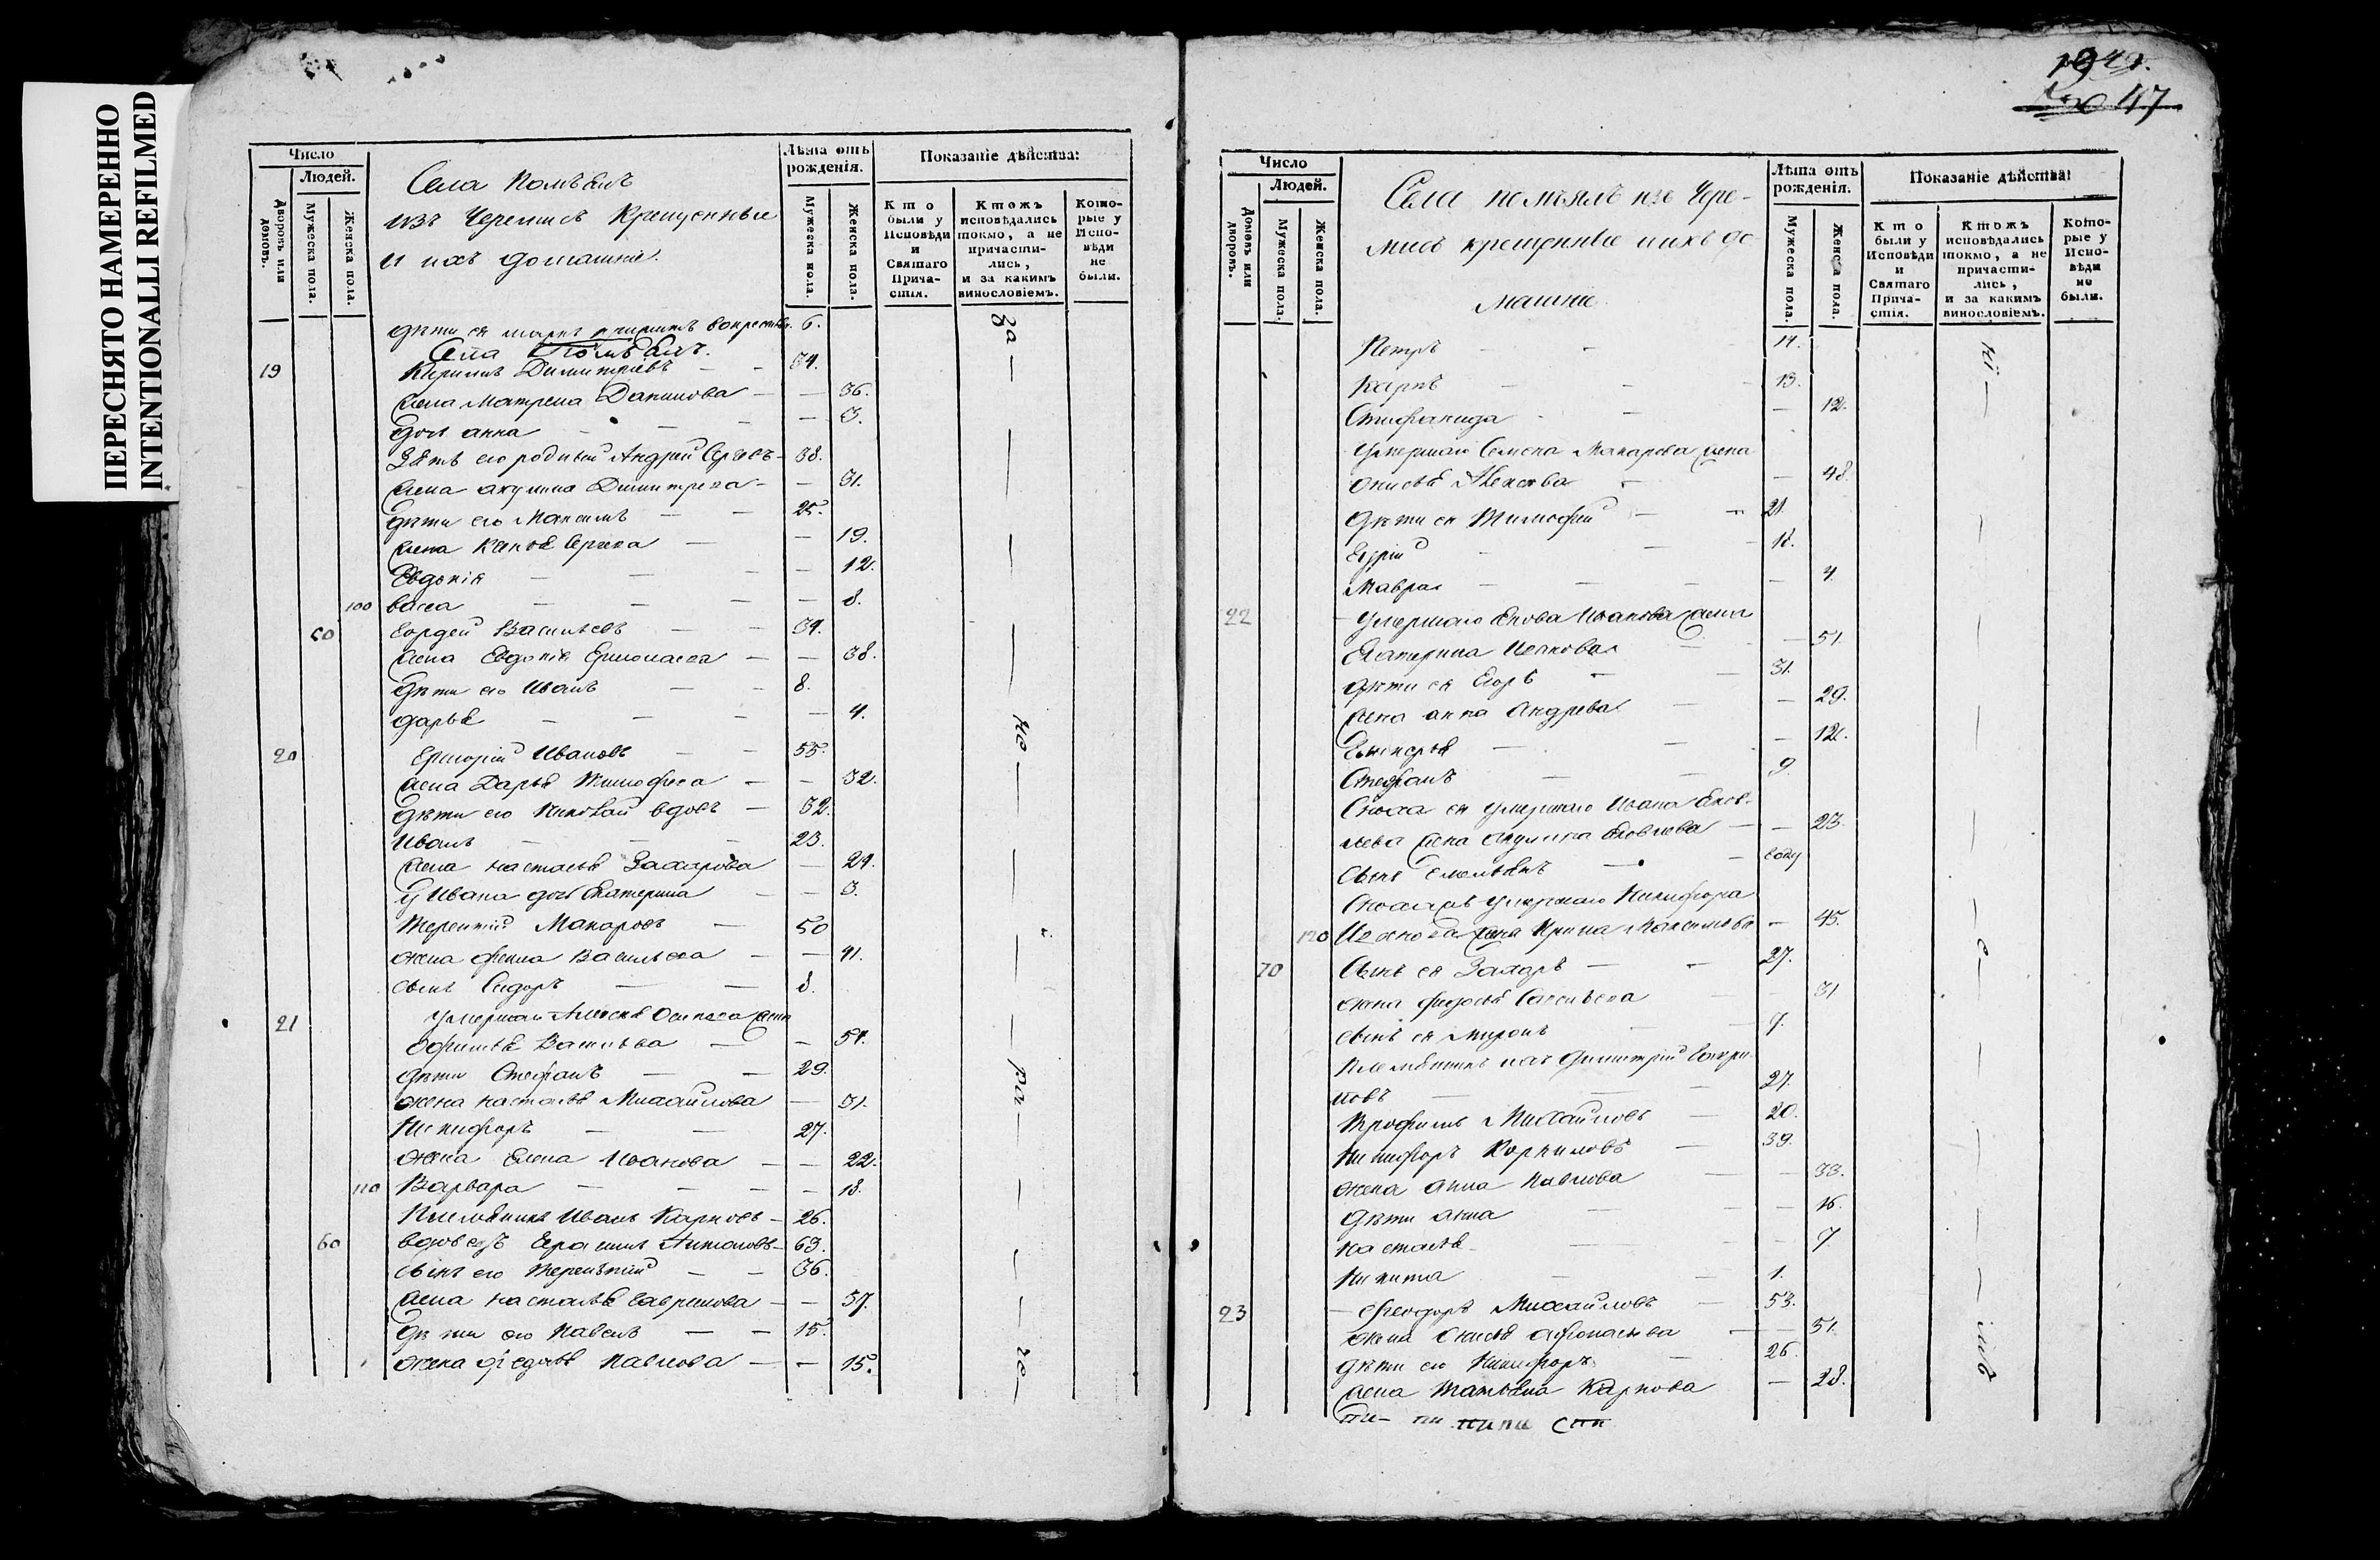 ПЕРЕСНЯТО НАМЕРЕННО
INTENTIONALLI REFILMED
Число
Людей.
Дворовъ или домовъ.
Мужеска пола.
Женска пола.
Села Помъялъ
изъ Черемисъ Крещенные
и ихъ домашніе.
Лѣта отъ рожденія.
Мужеска пола.
Женска пола.
Показаніе дѣйства:
Кто были у Исповѣди и Святаго Причастія.
Ктожъ исповѣдались токмо, а не причастились, и за какимъ винословіемъ.
Которые у Исповѣди не были.
дѣти ея 6.
Села Помъялъ.
19 Кирилъ Димитріевъ — — 34.
жена Матрена Данилова — — 36.
дочь анна — — — 3.
Зять его родный Андрей — 38.
жена акулина Димитрева — — 31.
дѣти его Максимъ — — 25.
жена Сергеева — — 19.
Евдокія — — — 12.
100 васса — — — 8.
50 Гордей Васильевъ — — 39.
жена Евдокія — — 38.
дѣти его Иванъ — — 8.
дарья — — — 4.
20 Григорій Ивановъ — — 55.
жена Дарья Тимофеева — — 52.
дѣти его Николай вдовъ — 32.
Иванъ — — — 23.
жена настасья Захарова — 24.
у Ивана дочь Екатерина — — 3.
Терентій Макаровъ — 50
жена Васильева — — 41.
сынъ Сидоръ — — 8.
21 умершаго Алексея Осипова жена
Офимья Васильева — — 54.
дѣти Стефанъ — — 29.
жена настасья Михайлова — 31.
Никифоръ — — 27.
жена Елена Иванова — — 22.
110 Варвара — — — 18.
Племянникъ Иванъ Карповъ — 26.
60 вдовецъ Герасимъ Антоновъ — 63.
сынъ его Терентій — — 36.
жена настасья Гаврилова — — 37.
дѣти его Павелъ — — 15.
жена федосья Павлова — — 15.
за — — — — — не — — — — ри — — — — че —
1941.
47
Число
Людей.
Домовъ или дворовъ.
Мужеска пола.
Женска пола.
Села помъялъ изъ Чере-
мисъ крещенные и ихъ до
машніе.
Лѣта отъ рожденія.
Мужеска пола.
Женска пола.
Показаніе дѣйства:
Кто были у Исповѣди и Святаго Причастія.
Ктожъ исповѣдались токмо, а не причастились, и за какимъ винословіемъ.
Которые у Исповѣди не были.
Петръ — — 14.
Карпъ — — — 13.
Стефанида — — — 12.
умершаго Семена Макарова жена
Анисья — — 48.
дѣти ея Тимофей — — 21.
— — 18.
Мавра — — — 4.
22 умершаго Якова Иванова жена
Екатерина Иванова — — 51.
дѣти ея Егоръ — — 31.
жена анна Андреева — — 29.
— — — 12.
Стефанъ — — 9.
Сноха ея умершаго Ивана Яков-
лева жена Акулина Яковлева — — 23.
Сынъ Емельянъ — — году
умершаго Никифора
120 жена Ирина Максимова — 45.
70 Сынъ ея Захаръ — — 27.
жена федосья Савельева — — 31
сынъ ея Миронъ — — 7.
Племянникъ ихъ Димитрій Гаври-
ловъ — — — 27.
Трофимъ Михайловъ — 20.
Никифоръ Корниловъ — 39.
жена Анна Павлова — — 33.
дѣти анна — — 16.
настасья — — 7
Никита — — 1.
23 — феодоръ Михайловъ — 53.
жена Анисья афонасьева — — 51.
дѣти его Никифоръ — 26.
жена Татьяна Карпова — 28.